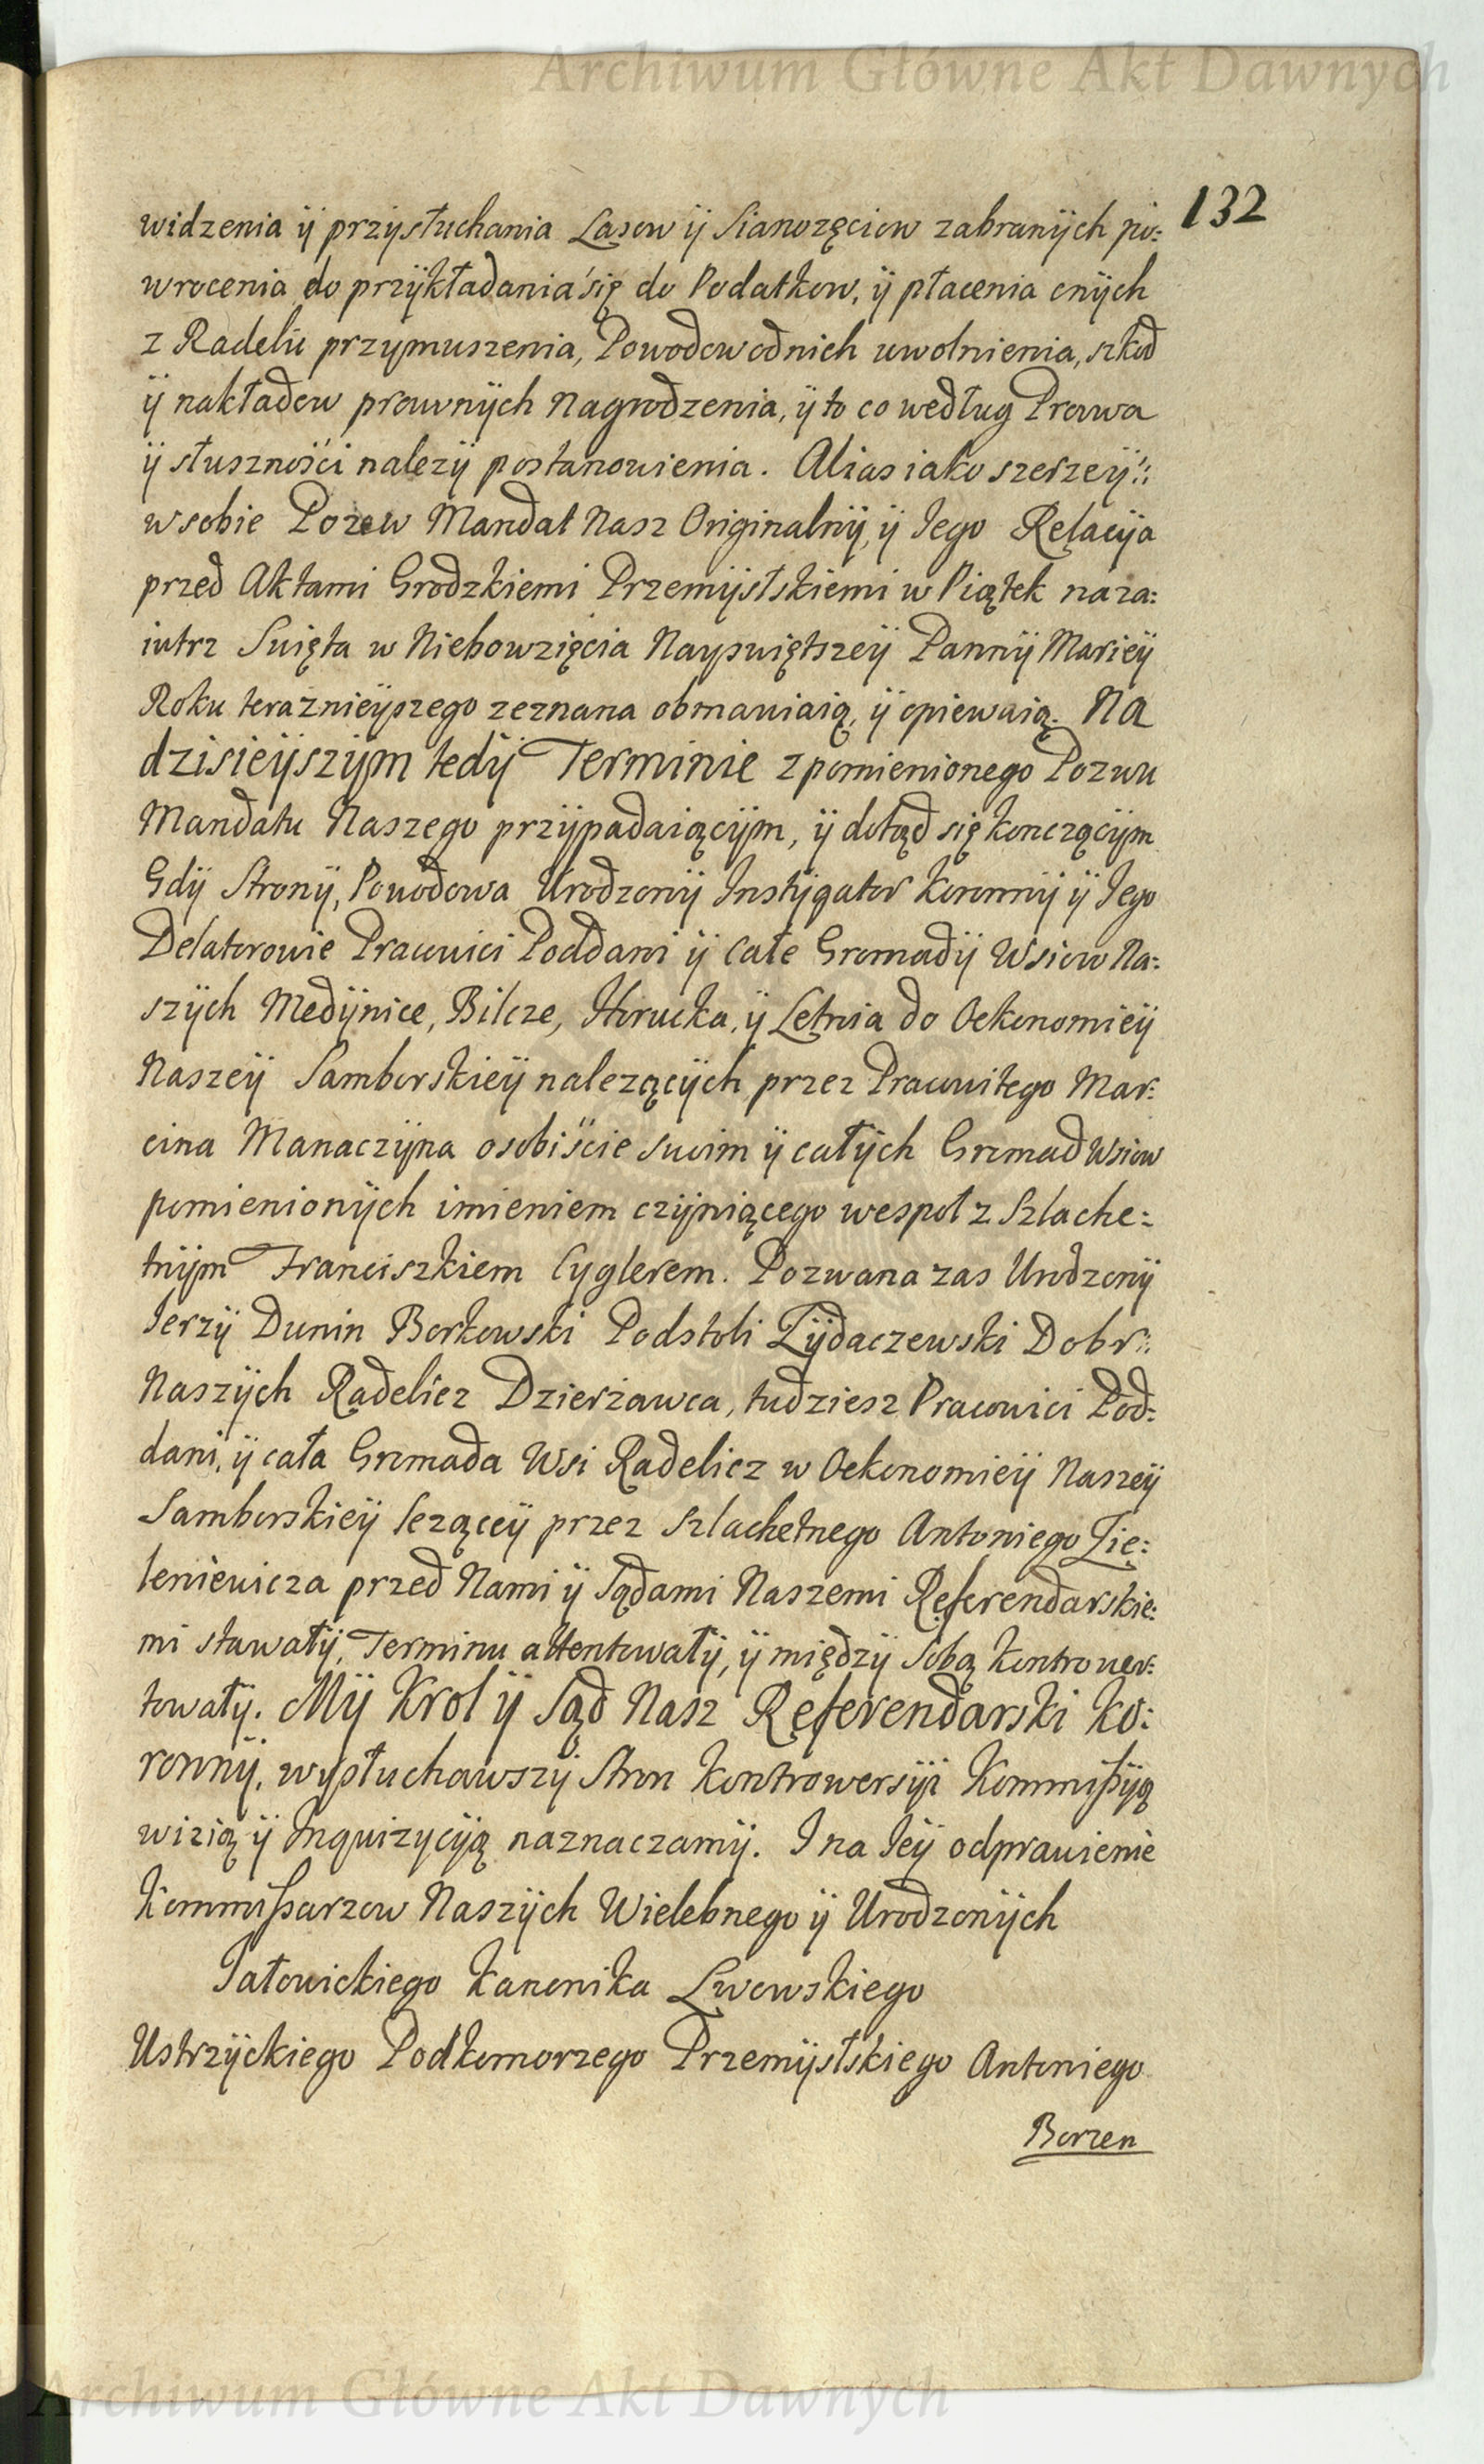 Archiwum Główne Akt Dawnych
132
widzenia ÿ przÿsłuchania Lasow ÿ Sianozęciow zabranÿch po:
wrocenia do przÿkładania się do Podatkow, ÿ płacenia onÿch
z Radelic przymuszenia, Powodow od nich uwolnienia, szkod
ÿ nakładow prawnÿch Nagrodzenia, ÿ to co według Prawa
ÿ słusznosći nalezÿ postanowienia. Alias iako szerzeÿ
w sobie Pozew Mandat Nasz Originalnÿ, ÿ Jego Relacÿa
przed Aktami Grodzkiemi Przemÿslskiemi w Piątek naza:
iutrz Swięta w Niebowzięcia Nayswiętszeÿ Pannÿ Marieÿ
Roku teraznieÿszego zeznana obmawiaią, ÿ opiewaią. Na
dzisieÿszÿm tedÿ Terminie z pomienionego Pozwu
Mandatu Naszego przÿpadaiącÿm, ÿ dotąd się konczącÿm
Gdÿ Stronÿ, Powodowa Urodzonÿ Instÿgator Koronnÿ ÿ Jego
Delatorowie Pracowici Poddani ÿ całe Gromadÿ Wsiow Na:
szÿch Medÿnice, Bilcze, Horucka, ÿ Letnia do Oekonomieÿ
Naszeÿ Samborskieÿ nalezącÿch przez Pracowitego Mar:
cina Manaczÿna osobiście swoim ÿ całÿch Gromad Wsiow
pomienionÿch imieniem czÿniącego wespoł z Szlache:
tnÿm Franciszkiem Cyglerem. Pozwana zas Urodzonÿ
Jerzÿ Dunin Borkowski Podstoli Zÿdaczewski Dobr
Naszÿch Radelicz Dzierżawca, tudziesz Pracowici Pod:
dani, ÿ cała Gromada Wsi Radelicz w Oekonomieÿ Naszeÿ
Samborskieÿ leząceÿ przez Szlachetnego Antoniego Zie:
leniewicza przed Nami ÿ Sądami Naszemi Referendarskie:
mi stawałÿ, Terminu attentowałÿ, ÿ międzÿ Sobą kontrower:
towałÿ. Mÿ Krol ÿ Sąd Nasz Referendarski Ko:
ronnÿ, wysłuchawszÿ Stron Kontrowersÿi Kommißÿą
wizią ÿ Inquizycÿą naznaczamÿ. I na Jeÿ odprawienie
Kommißarzow Naszÿch Wielebnego ÿ Urodzonÿch
Jałowickiego Kanonika Lwowskiego
Ustrzÿckiego Podkomorzego Przemÿslskiego Antoniego
Borzen
Archiwum Główne Akt Dawnych